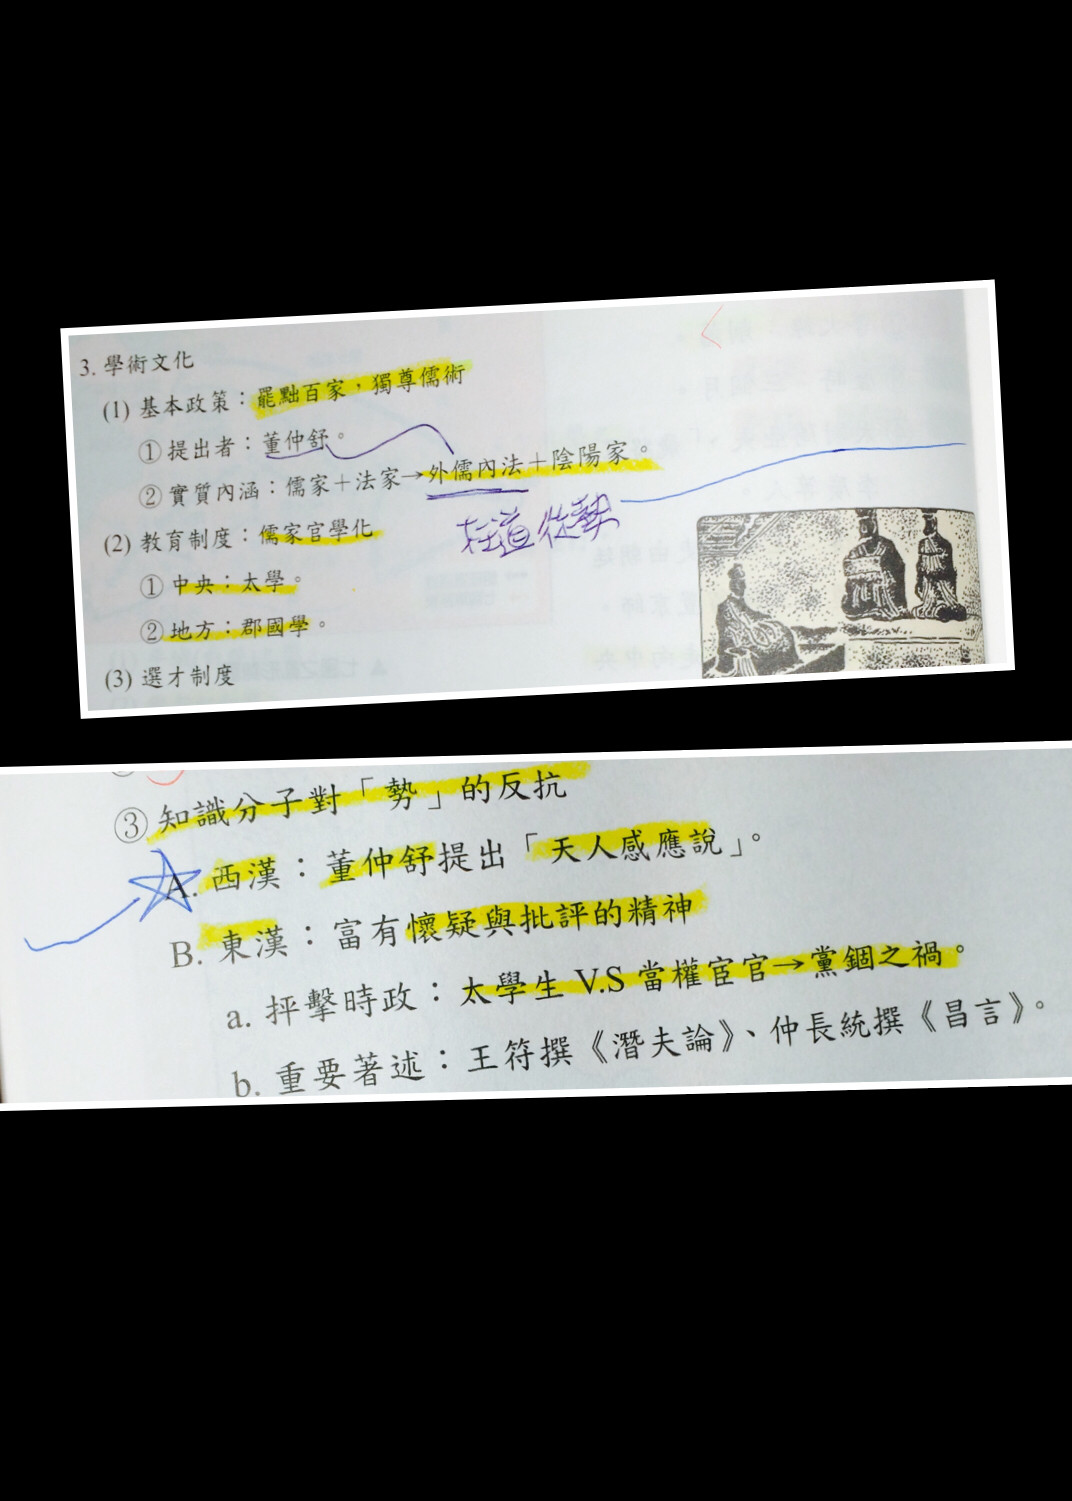 3. 學術文化
(1) 基本政策：罷黜百家，獨尊儒術
①提出者：董仲舒。
②實質內涵：儒家＋法家→外儒內法＋陰陽家。
枉道從勢
(2) 教育制度：儒家官學化
①中央：太學。
②地方：郡國學。
(3) 選才制度
③知識分子對「勢」的反抗
A. 西漢：董仲舒提出「天人感應說」。
B. 東漢：富有懷疑與批評的精神
a. 抨擊時政：太學生 V.S 當權宦官→黨錮之禍。
b. 重要著述：王符撰《潛夫論》、仲長統撰《昌言》。